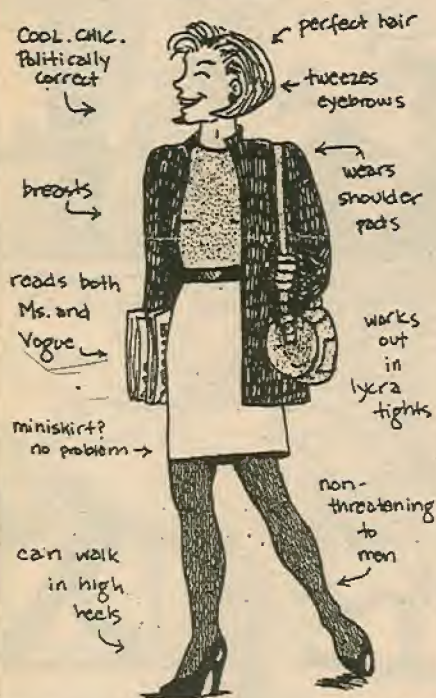 COOL. CHIC.
Politically
correct
perfect hair
tweezes
eyebrows
wears
shoulder
pads
breasts
reads both
Ms. and
Vogue
works
out
in
lycra
tights
miniskirt?
no problem
non-
threatening
to
men
can walk
in high
heels